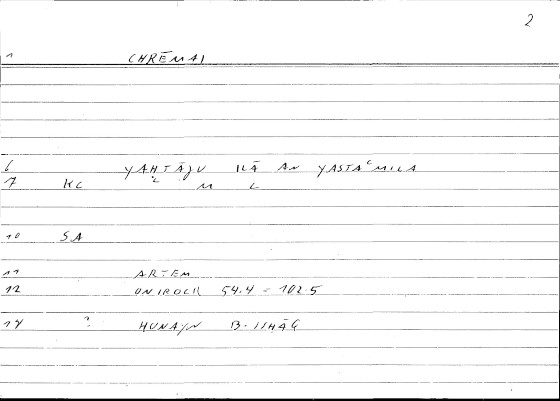 2
1 CHRĒMAI
6 YAḤTĀJU ILĀ AN YASTAʿMILA
7 KC L M L
10 SA
11 ARTEM
12 ONIROCR 54.4 = 102.5
14 ? HUNAYN B. ISHĀQ